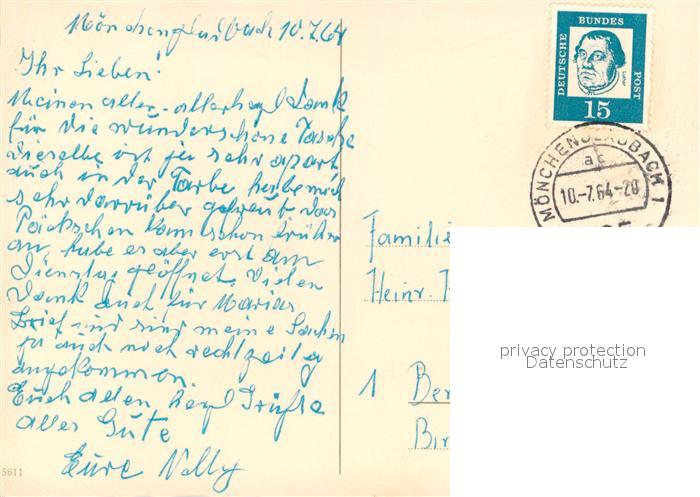 Mönchengladbach 10.7.64
Ihr Lieben!
Meinen aller-allerherzl Dank
für die wunderschöne Tasche
dieselbe ist ja sehr apart
auch in der Farbe habe mich
sehr darrüber gefreut das
Päckschen kam schon früher
an, habe es aber erst am
Dienstag geöffnet. Vielen
Dank auch für Marias
Brief und sind meine Sachen
ja auch noch rechtzeitig
angekommen.
Euch allen herzl Grüße
alles Gute
Eure Nelly
5611
DEUTSCHE BUNDES POST
15
MÖNCHENGLADBACH 1
ac
10.-7.64-20
Familie
Heinr.
1 Ber
Bir
privacy protection
Datenschutz